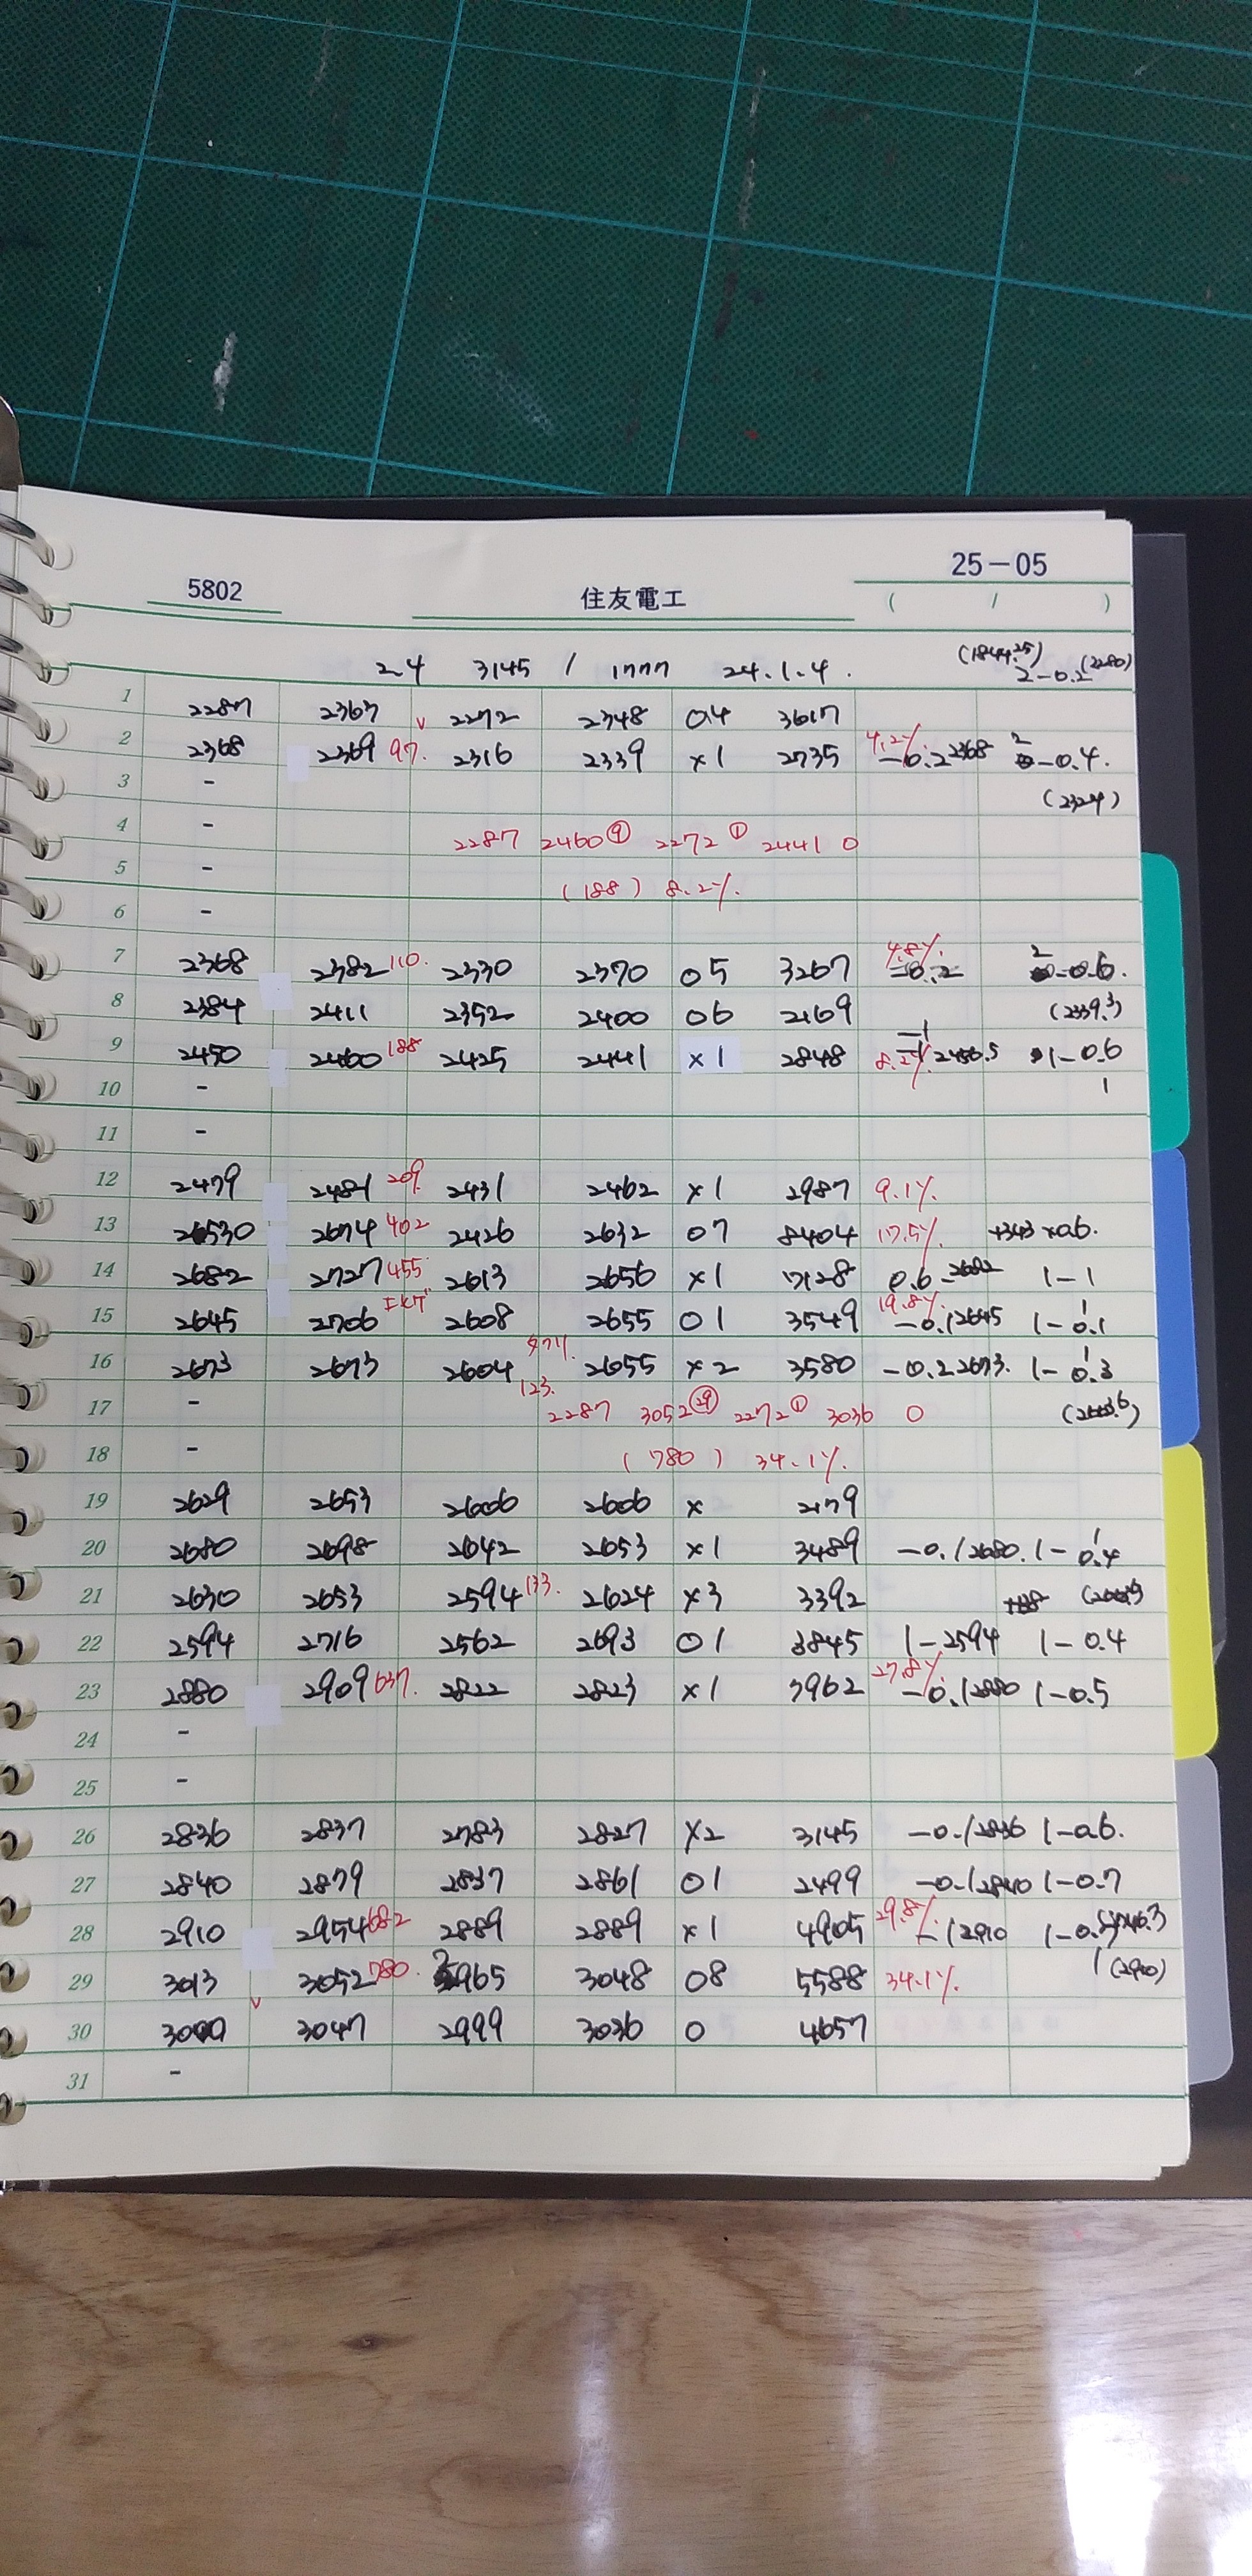 25-05
5802 住友電工 ( / )
2.4 3145 / 1777 24.1.4. (1844.25) 2-0.2 (2280)
1 2287 2363 v 2272 2348 04 3617
2 2368 2369 97. 2316 2339 ×1 2735 4.2% -0.2 2368 2 -0.4.
3 - (2324)
4 - 2287 2460⑨ 2272① 2441 0
5 - (188) 8.2%.
6 -
7 2368 2382 110. 2330 2370 05 3267 4.8% -0.2 2 -0.6.
8 2384 2411 2352 2400 06 2169 (2339.3)
9 2450 2460 188 2425 2441 ×1 2848 8.2% -1 1-0.6
10 - 1
11 -
12 2479 2481 209 2431 2462 ×1 2987 9.1%
13 2530 2674 402 2426 2632 07 8404 17.5% +343 ×0.6.
14 2682 2727 455 2613 2656 ×1 7128 0.6-2682 1-1
15 2645 2706 2608 2655 01 3549 19.8% -0.1 2645 1-0.1
16 2673 2673 2604 123. 2655 ×2 3580 -0.2 2673. 1-0.3
17 - 2287 3052㉙ 2272① 3036 0
18 - (780) 34.1%.
19 2629 2653 2606 2606 × 2179
20 2680 2698 2642 2653 ×1 3489 -0.1 2680. 1-0.4
21 2630 2653 2594 133. 2624 ×3 3392
22 2594 2716 2562 2693 01 3845 1-2594 1-0.4
23 2880 2909 637. 2822 2823 ×1 3962 27.8% -0.1 2880 1-0.5
24 -
25 -
26 2836 2837 2783 2827 ×2 3145 -0.1 2836 1-0.6.
27 2840 2879 2837 2861 01 2499 -0.1 2840 1-0.7
28 2910 2954 682 2889 2889 ×1 4905 29.8% -1 2910
29 3013 3052 780. 2965 3048 08 5588 34.1% 1 (2900)
30 v 3047 2999 3036 0 4657
31 -